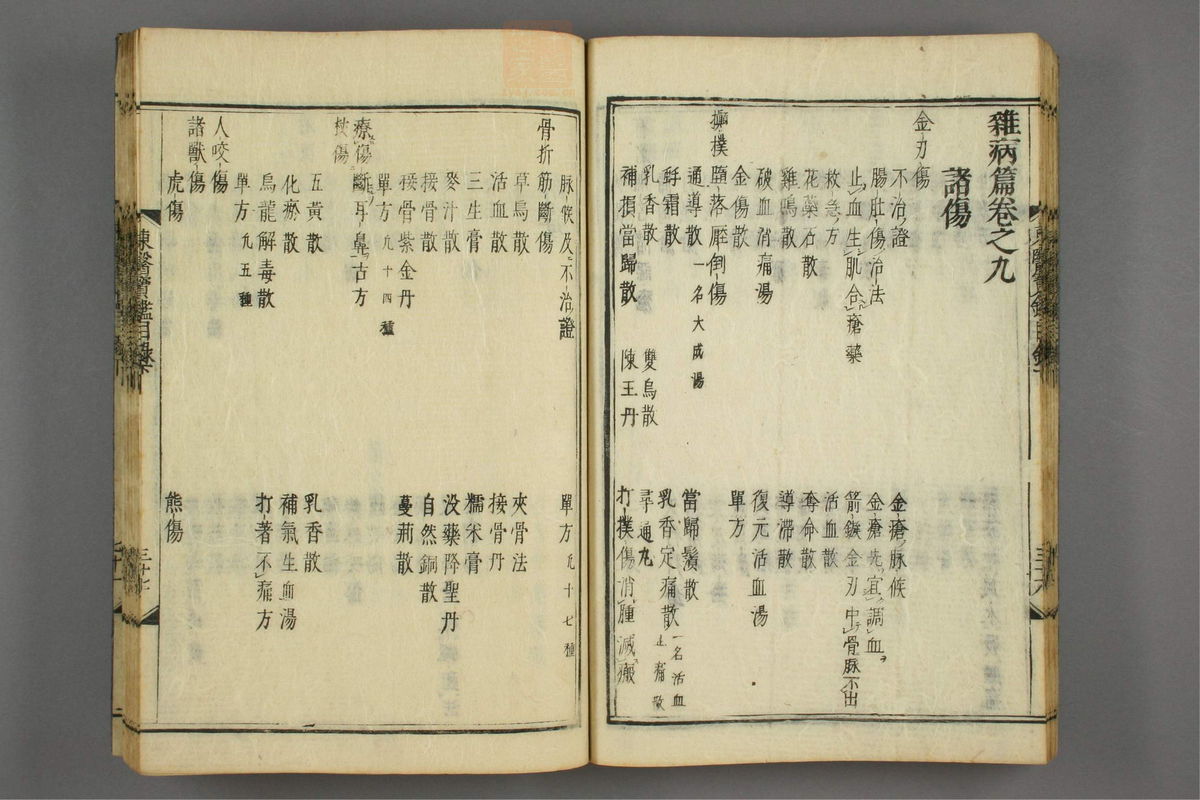 雜病篇卷之九
諸傷
金刃傷
不治證
金瘡脉候
腸肚傷治法
金瘡先宜調血
止血生肌合瘡藥
箭鏃金刃中骨脉不出
救急方
活血散
花藥石散
奪命散
雞鳴散
導滯散
破血消痛湯
復元活血湯
金傷散
單方
攧撲
墮落壓倒傷
通導散一名大成湯
當歸鬚散
乳香定痛散一名活血止痛散
乳香散
雙烏散
尋痛丸
補損當歸散
陳王丹
打撲傷消腫滅瘢
脉候及不治證
單方九十七種
骨折筋斷傷
草烏散
夾骨法
活血散
接骨丹
三生膏
糯米膏
麥汁散
没藥降聖丹
接骨散
自然銅散
接骨紫金丹
蔓荊散
單方九十四種
療傷斷耳鼻古方
杖傷
五黃散
乳香散
化瘀散
補氣生血湯
烏龍解毒散
打著不痛方
單方九五種
人咬傷
諸獸傷
虎傷
熊傷
東醫寶鑑目錄
三十七